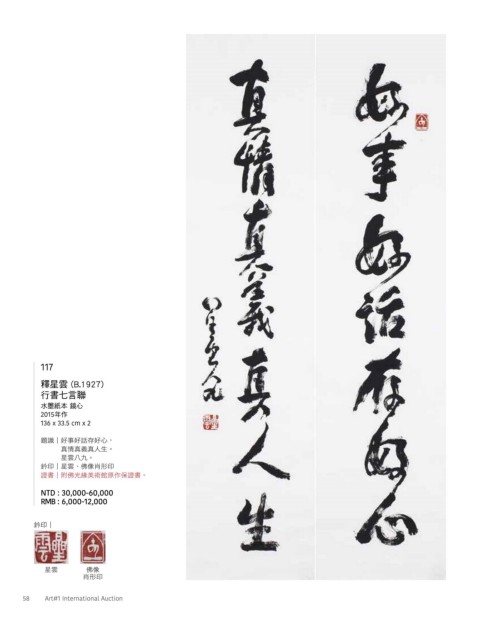 好事好話存好心
真情真義真人生
星雲八九
117
釋星雲 (B.1927)
行書七言聯
水墨紙本 鏡心
2015年作
136 x 33.5 cm x 2
題識｜好事好話存好心，
真情真義真人生。
星雲八九。
鈐印｜星雲、佛像肖形印
證書｜附佛光緣美術館原作保證書。
NTD : 30,000-60,000
RMB : 6,000-12,000
鈐印｜
星雲
星雲
佛像
肖形印
58 Art#1 International Auction